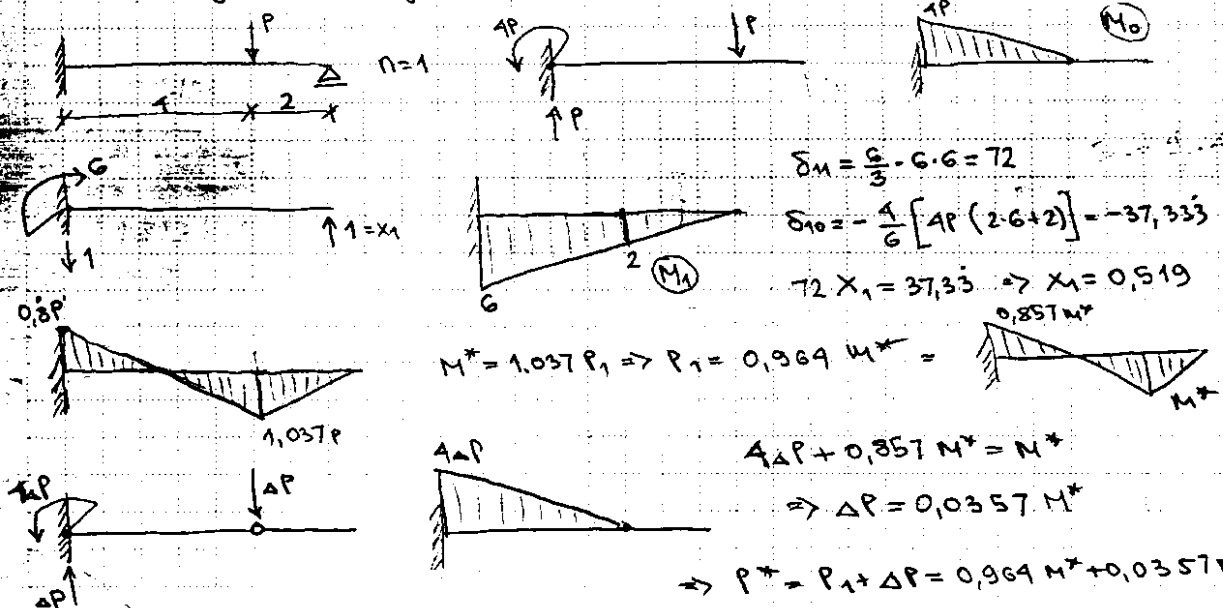 P
n=1
4 2
4P
P
P
4P
M₀
6
1
1=x₁
6
2
M₁
δ₁₁ = 6/3 · 6·6 = 72
δ₁₀ = - 4/6 [4P (2·6+2)] = -37,333
72 X₁ = 37,33 => X₁ = 0,519
0,8P
1,037P
M* = 1.037 P₁ => P₁ = 0,964 M* =
0,857 M*
M*
4ΔP
ΔP
ΔP
4ΔP
4ΔP + 0,857 M* = M*
=> ΔP = 0,0357 M*
=> P* = P₁ + ΔP = 0,964 M* + 0,0357